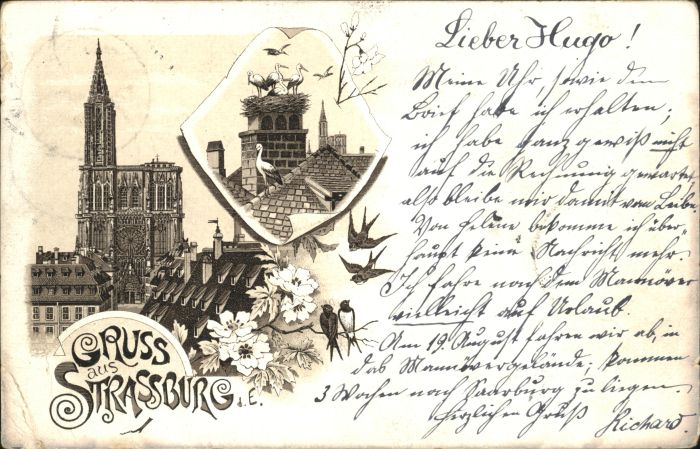 Lieber Hugo!
Meine Uhr, sowie den
Brief habe ich erhalten;
ich habe ganz gewiß nicht
auf die Rechnung gewartet
als bleibe mir damit vom Leibe
Von Helene bekomme ich über-
haupt keine Nachricht mehr.
Ich fahre nach dem Manöver
vielleicht auf Urlaub.
Am 19. August fahren wir ab, in
das Manövergelände, kommen
3 Wochen nach Saarburg zu liegen.
Herzlichen Gruß Richard.
GRUSS
aus
STRASSBURG
i. E.